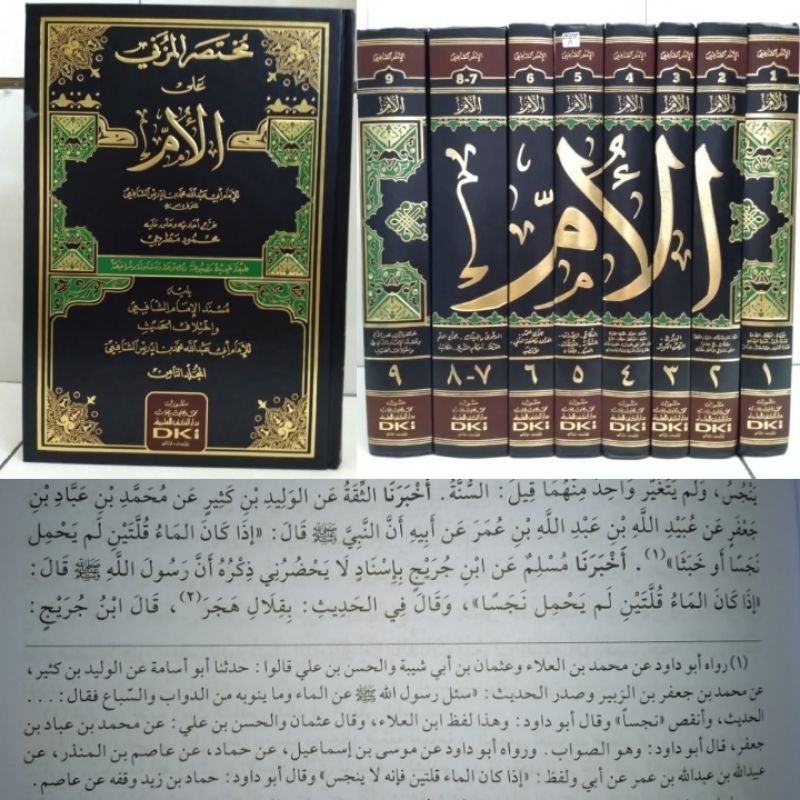 مختصر المزني
على
الأم
للإمام أبي عبد الله محمد بن إدريس الشافعي
خرّج أحاديثه وعلّق عليه
محمود مطرجي
يليه
مسند الإمام الشافعي
واختلاف الحديث
للإمام أبي عبد الله محمد بن إدريس الشافعي
المجلد الثامن
دار الكتب العلمية
DKi
الإمام الشافعي
9
8-7
6
5
4
3
2
1
الأم
الأم
٩
٨-٧
٦
٥
٤
٣
٢
١
DKi
يَنْجُسُ، وَلَمْ يَتَغَيَّرْ وَاحِدٌ مِنْهُمَا قِيلَ: السُّنَّةُ. أَخْبَرَنَا الثِّقَةُ عَنِ الْوَلِيدِ بْنِ كَثِيرٍ عَنْ مُحَمَّدِ بْنِ عَبَّادِ بْنِ
جَعْفَرٍ عَنْ عُبَيْدِ اللَّهِ بْنِ عَبْدِ اللَّهِ بْنِ عُمَرَ عَنْ أَبِيهِ أَنَّ النَّبِيَّ ﷺ قَالَ: «إِذَا كَانَ الْمَاءُ قُلَّتَيْنِ لَمْ يَحْمِلْ
نَجَسًا أَوْ خَبَثًا»(١). أَخْبَرَنَا مُسْلِمٌ عَنِ ابْنِ جُرَيْجٍ بِإِسْنَادٍ لَا يَحْضُرُنِي ذِكْرُهُ أَنَّ رَسُولَ اللَّهِ ﷺ قَالَ:
«إِذَا كَانَ الْمَاءُ قُلَّتَيْنِ لَمْ يَحْمِلْ نَجَسًا»، وَقَالَ فِي الْحَدِيثِ: بِقِلَالِ هَجَرَ(٢)، قَالَ ابْنُ جُرَيْجٍ:
(١) رواه أبو داود عن محمد بن العلاء وعثمان بن أبي شيبة والحسن بن علي قالوا: حدثنا أبو أسامة عن الوليد بن كثير،
عن محمد بن جعفر بن الزبير وصدر الحديث: «سئل رسول الله ﷺ عن الماء وما ينوبه من الدواب والسّباع فقال: ...
الحديث، وأنقص «نجساً» وقال أبو داود: وهذا لفظ ابن العلاء، وقال عثمان والحسن بن علي: عن محمد بن عباد بن
جعفر، قال أبو داود: وهو الصواب. ورواه أبو داود عن موسى بن إسماعيل، عن حماد، عن عاصم بن المنذر، عن
عبيدالله بن عبدالله بن عمر عن أبي ولفظ: «إذا كان الماء قلتين فإنه لا ينجس» وقال أبو داود: حماد بن زيد وقفه عن عاصم.